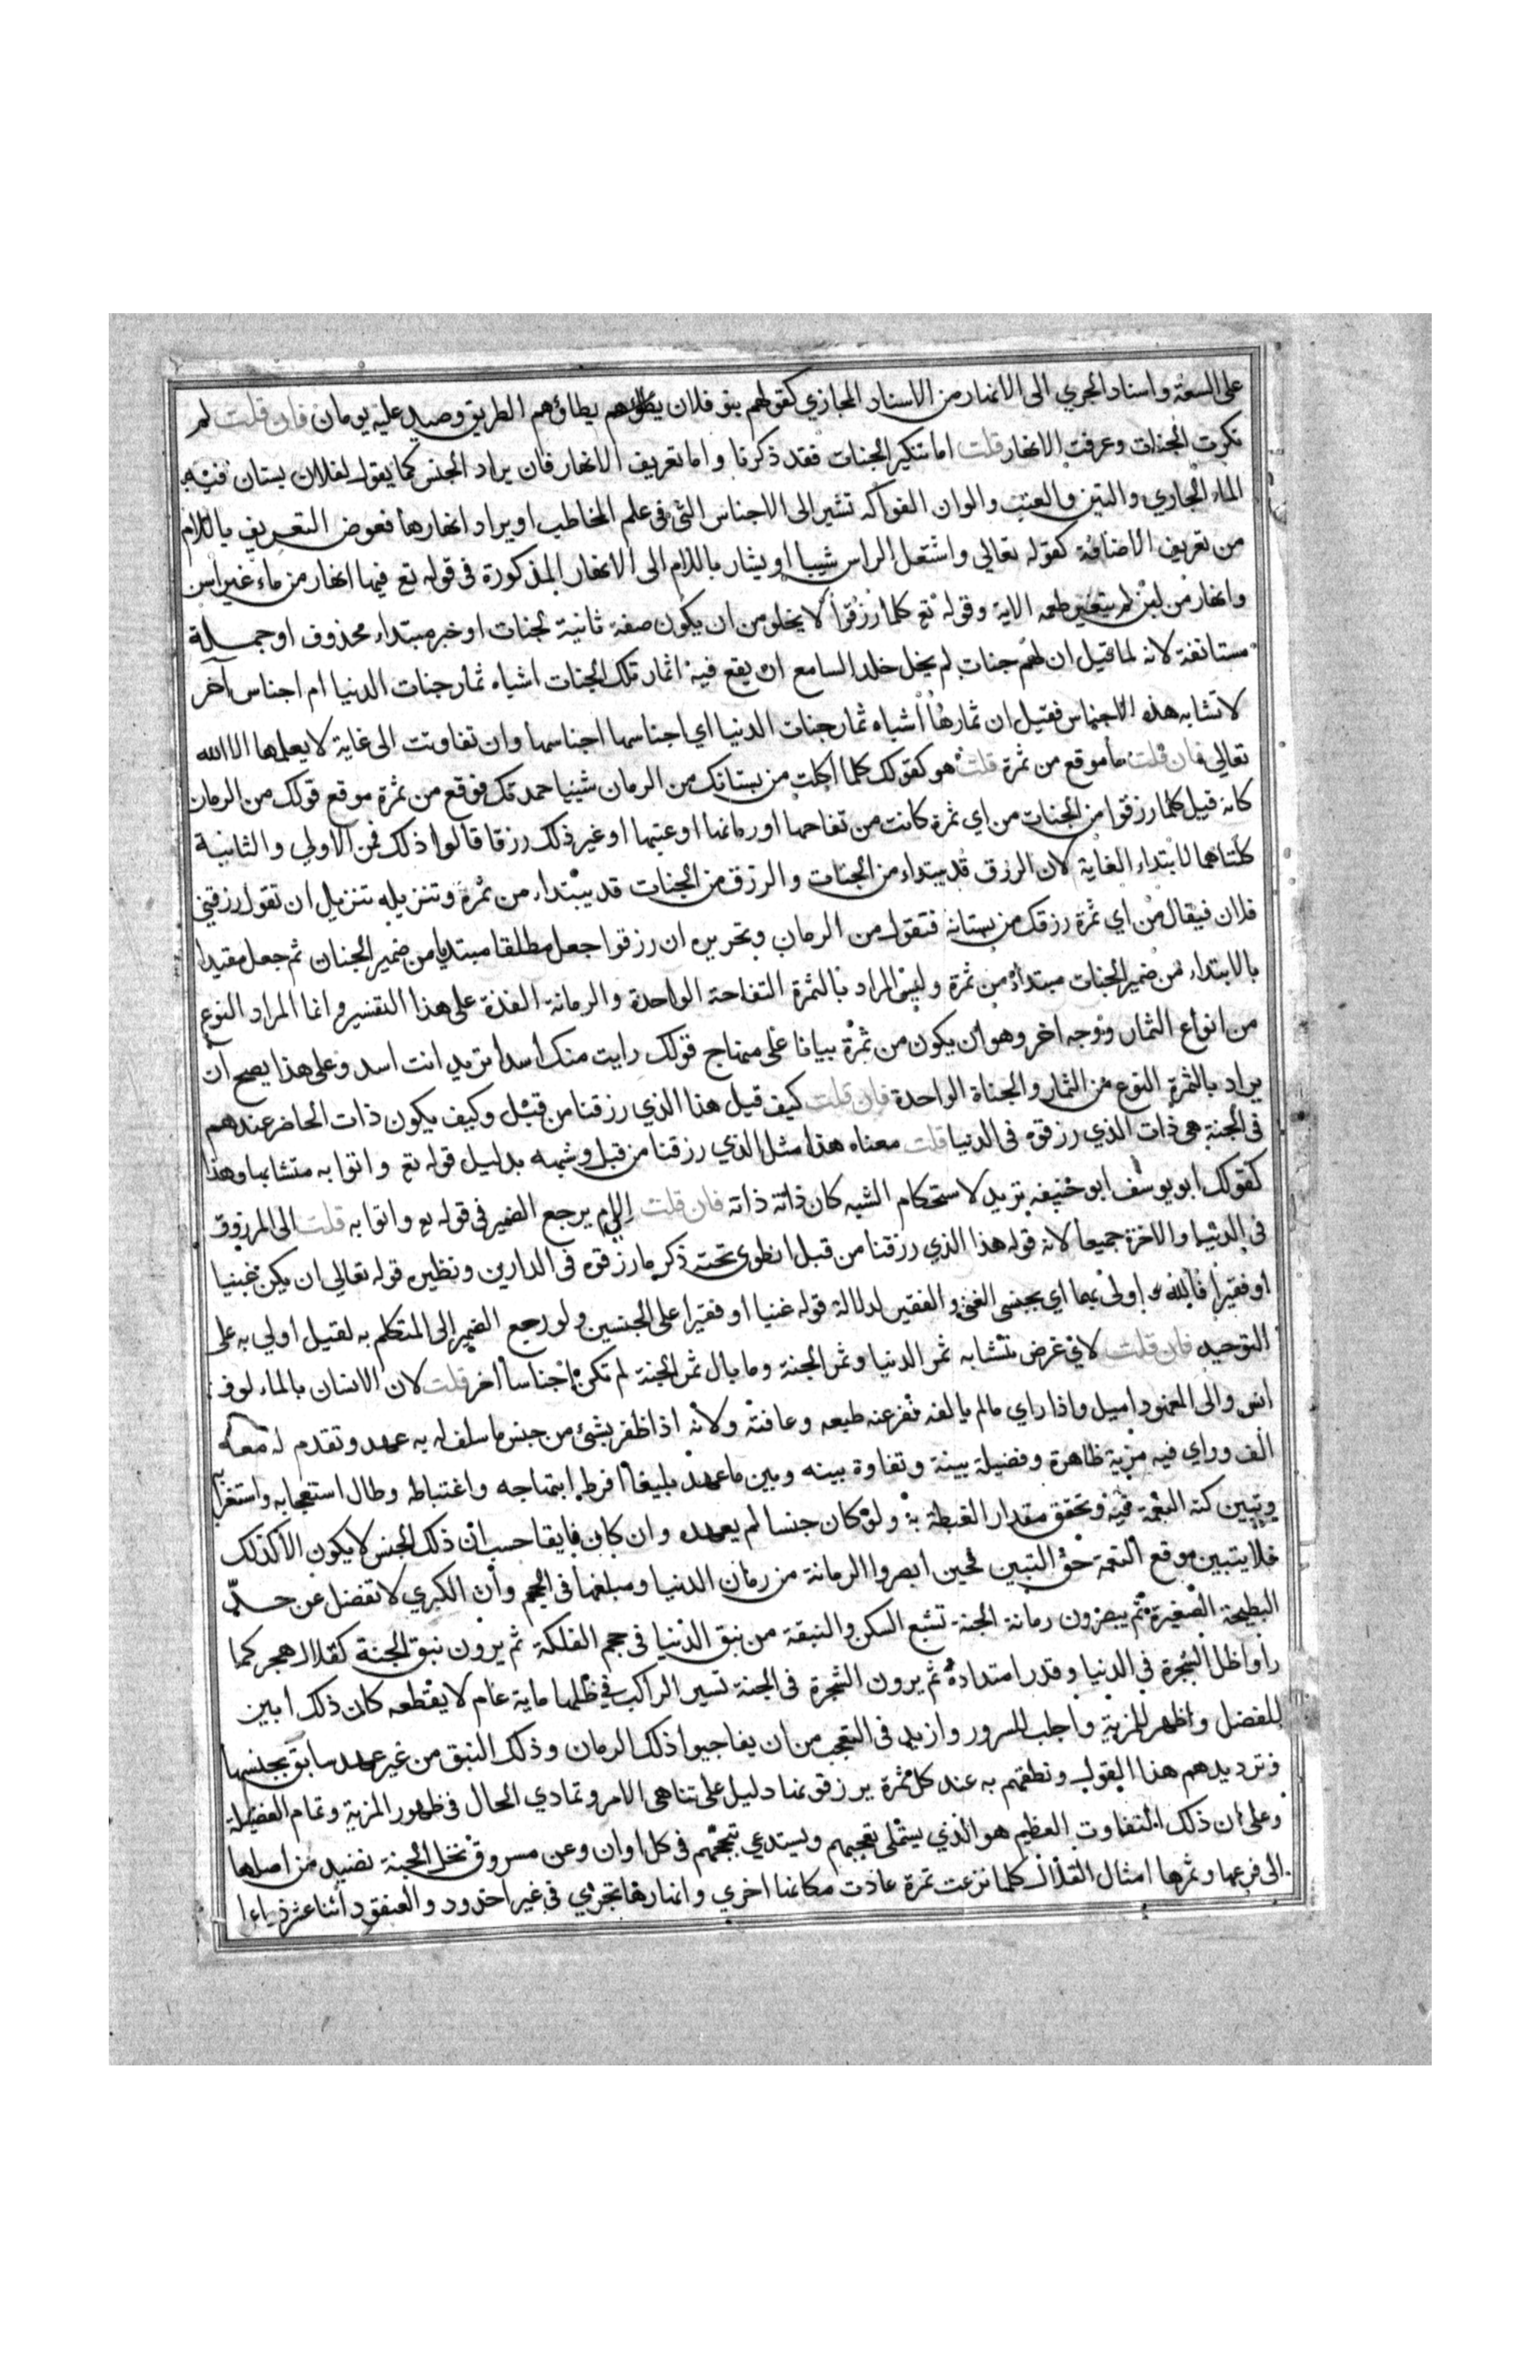 على السعة واسناد الجري الى الانهار من الاسناد المجازي كقولهم بنو فلان يطؤهم يطاؤهم الطريق وصيد عليه يومان فان قلت لم
نكرت الجنات وعرفت الانهار قلت اما تنكير الجنات فقد ذكرنا واما تعريف الانهار فان يراد الجنس كما يقول لفلان بستان فيه
الماء الجاري والتين والعنب والوان الفواكه تشير الى الاجناس التي في علم المخاطب او يراد انهارها فعوض التعريف باللام
من تعريف الاضافة كقوله تعالي واشتعل الراس شيبا او يشار باللام الى الانهار المذكورة في قوله تع فيها انهار من ماء غير اسن
وانهار من لبن لم يتغير طعمه الاية وقوله تع كلما رزقوا لا يخلو من ان يكون صفة ثانية لجنات او خبر مبتداء محذوف او جملة
مستانفة لانه لما قيل ان لهم جنات لم يخل خلد السامع ان يقع فيه اثمار تلك الجنات اشباه ثمار جنات الدنيا ام اجناس آخر
لا تشابه هذه الاجناس فقيل ان ثمارها اشباه ثمار جنات الدنيا اي اجناسها اجناسها وان تفاوتت الى غاية لا يعلمها الا الله
تعالي فان قلت ما موقع من ثمرة قلت هو كقولك كلما اكلت من بستانك من الرمان شيئيا حمدتك فوقع من ثمرة موقع قولك من الرمان
كانه قيل كلما رزقوا من الجنات من اي ثمرة كانت من تفاحها او رمانها او عنبها او غير ذلك رزقا قالوا ذلك فمن الاولي والثانية
كلتاهما لابتداء الغاية لان الرزق قد يبتداء من الجنات والرزق من الجنات قد يبتداء من ثمرة وتنزيله تنزيل ان تقول رزقني
فلان فيقال من اي ثمرة رزقك من بستانه فتقول من الرمان وتحريره ان رزقوا جعل مطلقا مبتديا من ضمير الجنان ثم جعل مقيدا
بالابتداء من ضمير الجنات مبتداة من ثمرة وليس المراد بالثمرة التفاحة الواحدة والرمانة الفذة على هذا التفسير وانما المراد النوع
من انواع الثمار ووجه اخر وهو ان يكون من ثمرة بيانا على منهاج قولك رايت منك اسدا تريد انت اسد وعلى هذا يصح ان
يراد بالثمرة النوع من الثمار والجناة الواحدة فان قلت كيف قيل هذا الذي رزقنا من قبل وكيف يكون ذات الحاضر عندهم
في الجنة هي ذات الذي رزقوه في الدنيا قلت معناه هذا مثل الذي رزقنا من قبل وشبهه بدليل قوله تع واتوا به متشابها وهذا
كقولك ابو يوسف ابو حنيفه تريد لاستحكام الشبه كان ذاته ذاته فان قلت الام يرجع الضمير في قوله تع واتوا به قلت الى المرزوق
في الدنيا والاخرة جميعا لانه قوله هذا الذي رزقنا من قبل انطوى تحته ذكر ما رزقوه في الدارين ونظيره قوله تعالي ان يكن غنيا
او فقيرا فالله اولى بهما اي بجنسي الغني والفقير لدلالة قوله غنيا او فقيرا على الجنسين ولو رجع الضمير الى المتكلم به لقيل اولي به على
التوحيد فان قلت لاي غرض تتشابه ثمر الدنيا وثمر الجنة وما بال ثمر الجنة لم تكن اجناسا اخر قلت لان الانسان بالمالوف
انس والى المعهود اميل واذا راي مالم يالفه نفر عنه طبعه وعافته ولانه اذا ظفر بشئ من جنس ما سلف له به عهد وتقدم له معه
الف وراي فيه مزية ظاهرة وفضيلة بينة وتفاوة بينه وبين ما عهد بليغا افرط ابتهاجه واغتباطه وطال استعجابه واستغرابه
ويتبين كنه النعمة فيه وتحقق مقدار الغبطة به ولو كان جنسا لم يعهده وان كان فايقا حسب ان ذلك الجنس لا يكون الا كذلك
فلا يتبين موقع النعمة حق التبين فحين ابصروا الرمانة من رمان الدنيا ومبلغها في الحجم وأن الكبري لا تفضل عن حد
البطيخة الصغيرة ثم يبصرون رمانة الجنة تشبع السكن والنبقة من نبق الدنيا في حجم الفلكة ثم يرون نبق الجنة كقلال هجر كما
راوا ظل الشجرة في الدنيا وقدر امتداده ثم يرون الشجرة في الجنة تسير الراكب في ظلها ماية عام لا يقطعه كان ذلك ابين
للفضل واظهر للمزية واجلب للسرور وازيد في التعجب من ان يفاجيوا ذلك الرمان وذلك النبق من غير عهد سابق بجنسها
وترديدهم هذا القول ونطقهم به عند كل ثمرة يرزقونها دليل على تناهي الامر وتمادي الحال في ظهور المزية وتمام الفضيلة
وعلى ان ذلك التفاوت العظيم هو الذي يستملى تعجبهم ويستدعي تبجحهم في كل اوان وعن مسروق نخل الجنة نضيد من اصلها
الى فرعها وثمرها امثال القلال كلما نزعت ثمرة عادت مكانها اخري وانهارها تجري في غير اخدود والعنقود اثنا عشر ذراعا